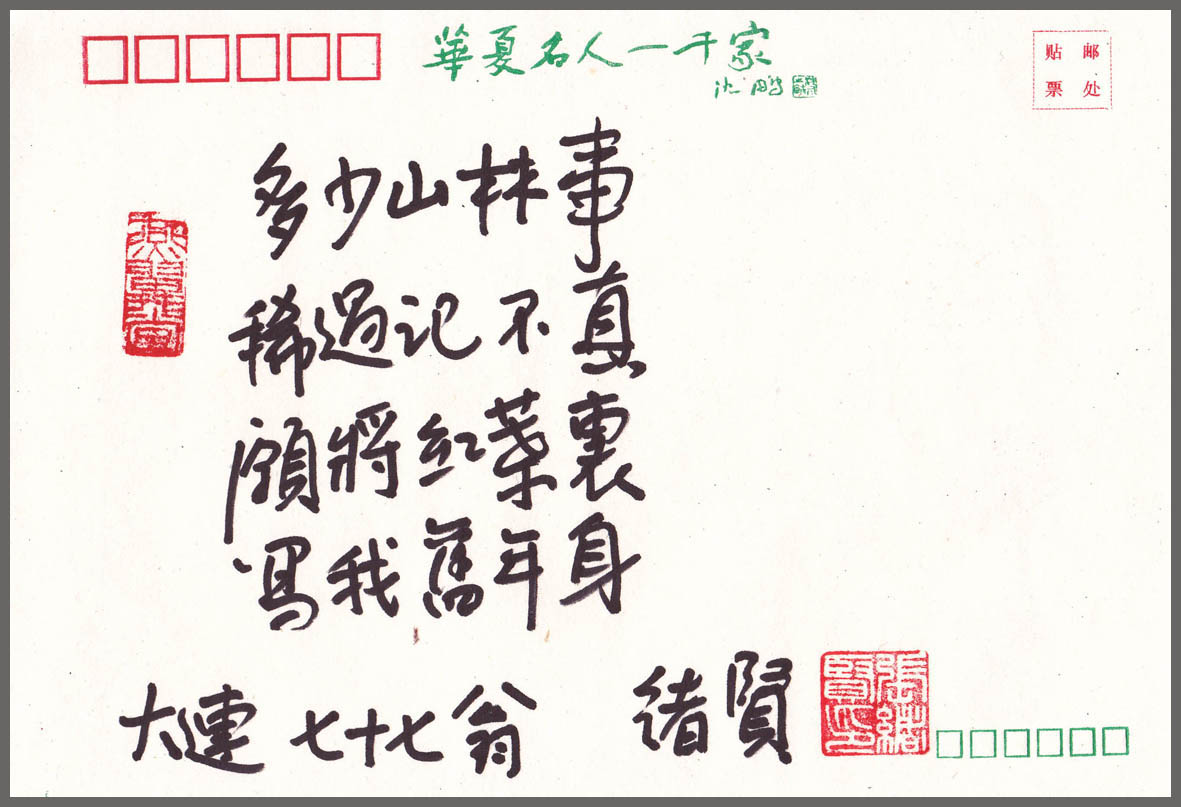 華夏名人一千家
沈鵬
贴邮
票处
多少山林事
稀過记不真
願將红葉裏
寫我舊年身
大連 七十七翁 緒賢
張緒賢印